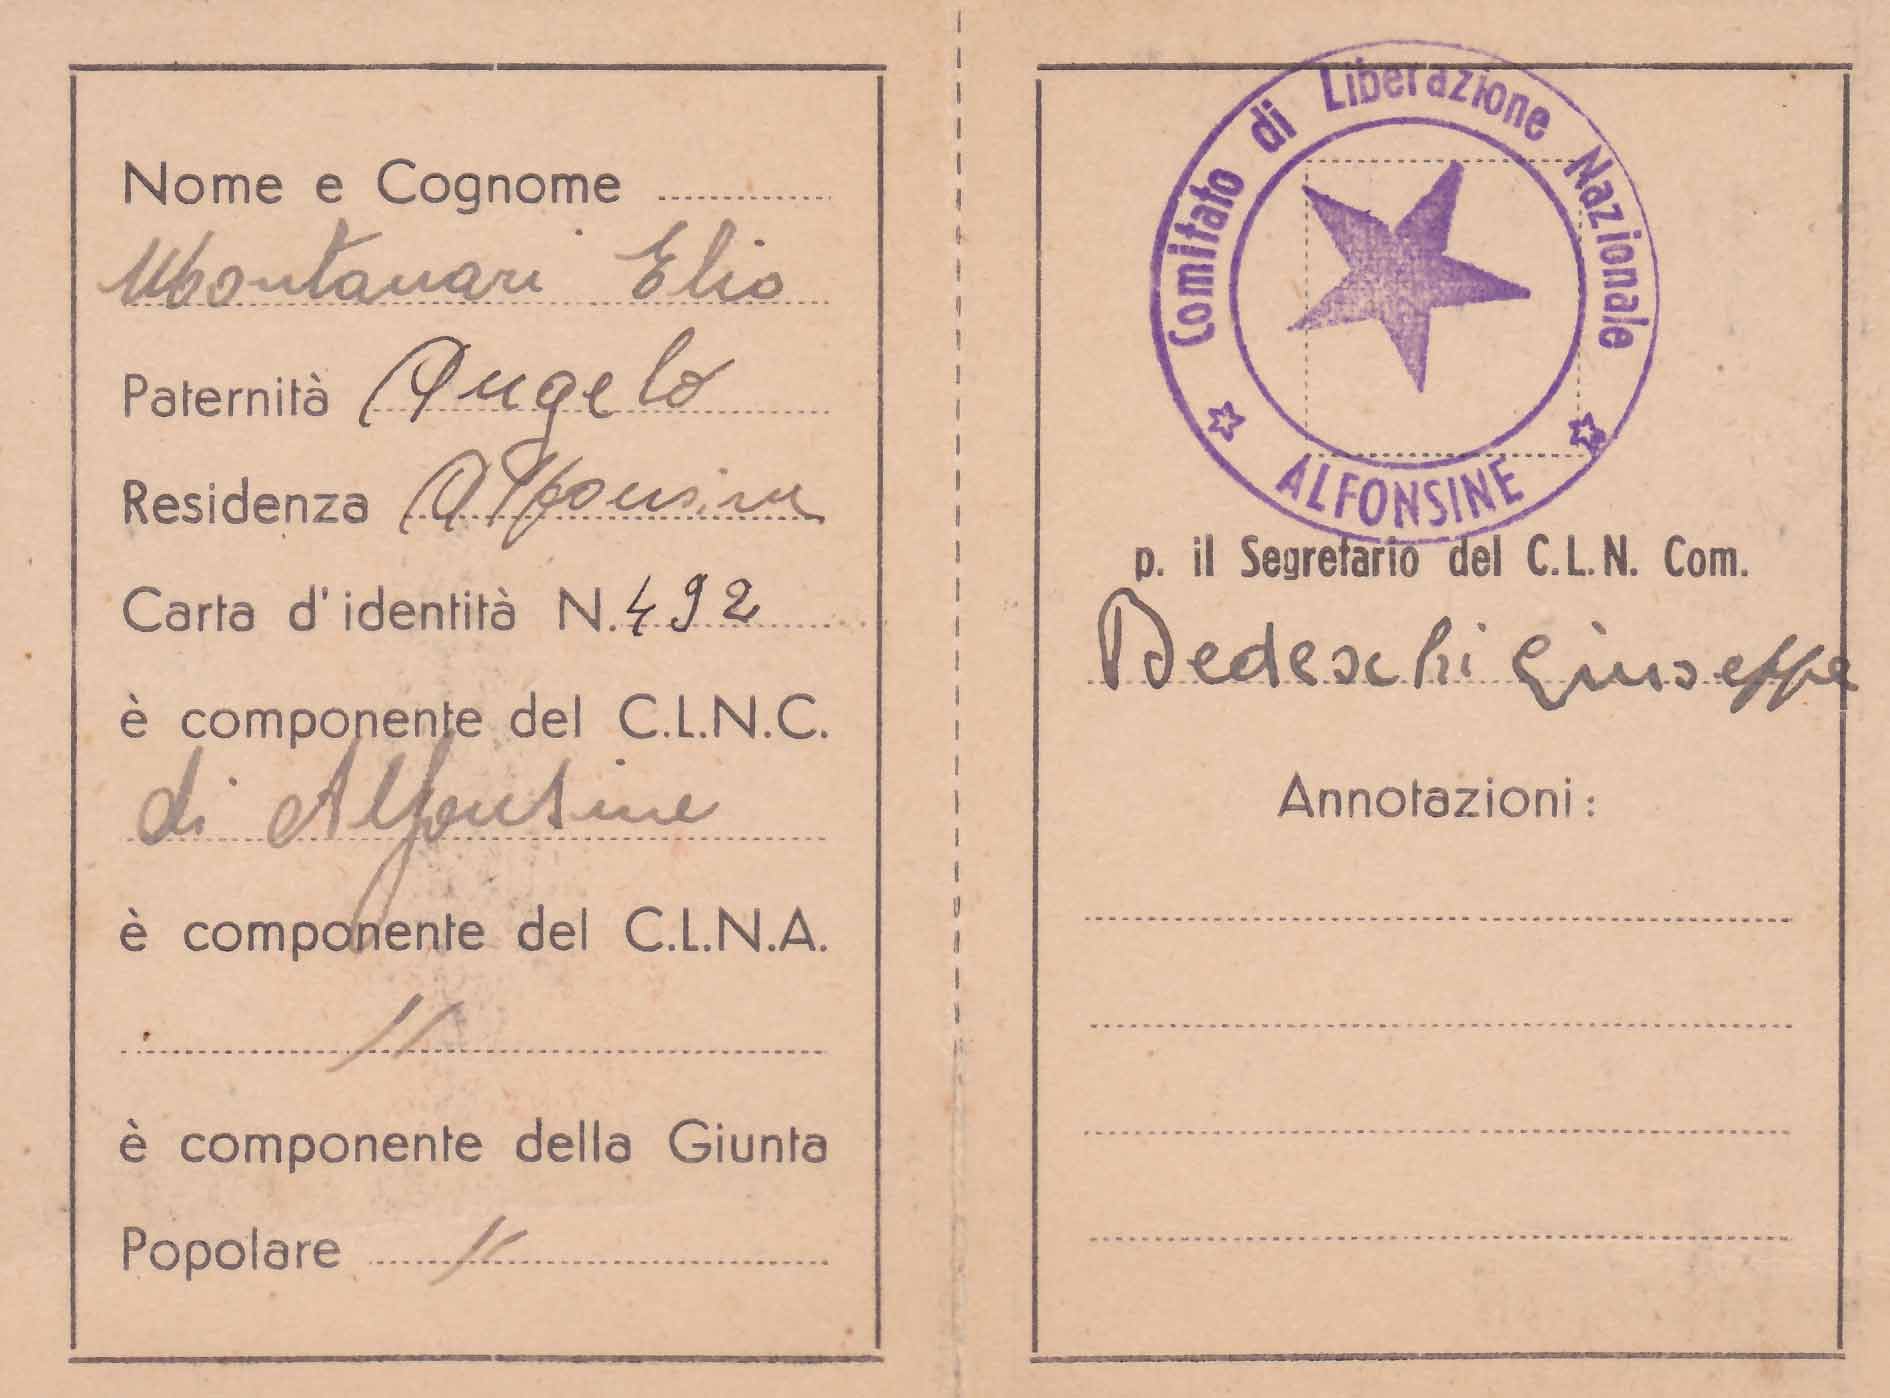 Nome e Cognome
Montanari Elio
Paternità Angelo
Residenza Alfonsine
Carta d'identità N. 492
è componente del C.L.N.C.
di Alfonsine
è componente del C.L.N.A.
"
è componente della Giunta
Popolare "
Comitato di Liberazione Nazionale
ALFONSINE
p. il Segretario del C.L.N. Com.
Bedeschi Giuseppe
Annotazioni: